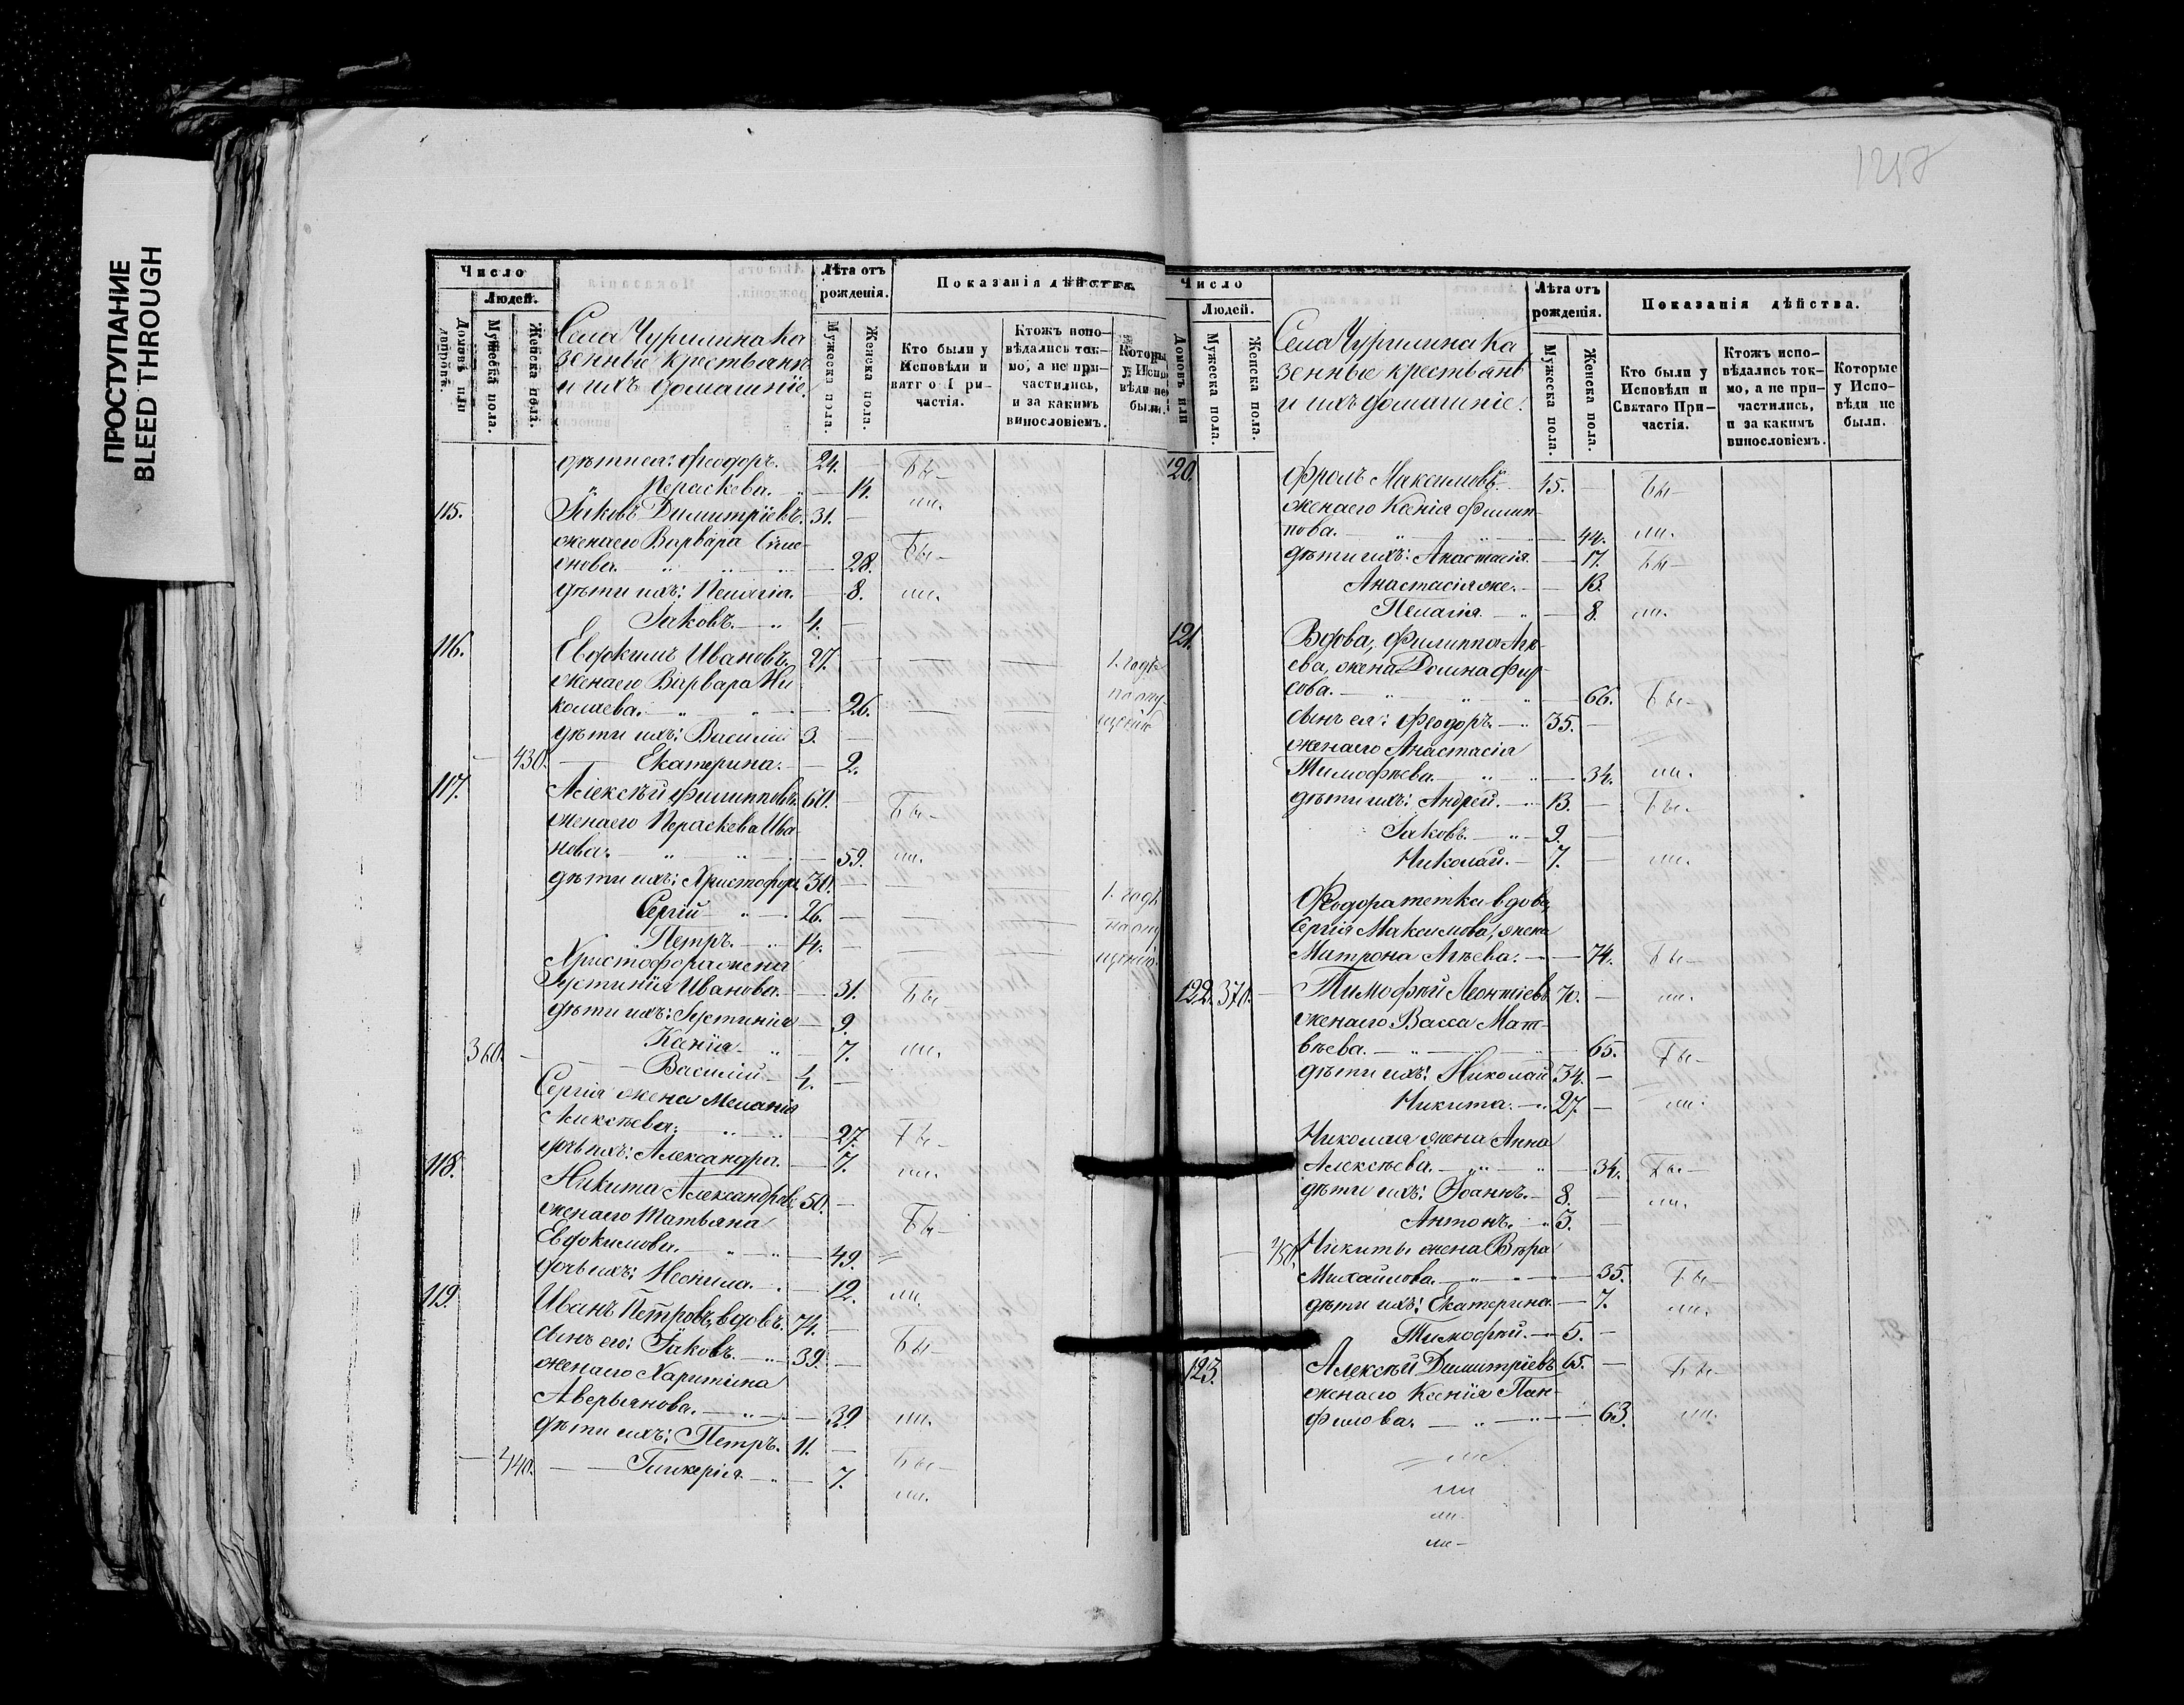 ПРОСТУПАНИЕ
BLEED THROUGH
Число
Людей.
Домовъ или дворовъ.
Мужеска пола.
Женска пола.
Села Чурилина ка
зенные крестьянъ
и ихъ домашніе.
Лѣта отъ
рожденія.
Мужеска пола.
Женска пола.
Показанія дѣйства.
Кто были у
Исповѣди и
вятго При-
частія.
Ктожъ испо-
вѣдались ток-
мо, а не при-
частились,
и за какимъ
винословіемъ.
Которы
у Испо
вѣди не
были.
дѣти ея: Феодоръ. 24. — Бы-
" Пераскева. — 14. ли.
115. Іаковъ Димитріевъ. 31. —
жена его Варвара Симе- Бы-
онова. — 28.
дѣти ихъ: Пелагія. — 8. ли.
Іаковъ. — 4. —
116. Евфкимъ Ивановъ. 27. — 1. годъ
жена его Варвара Ни по опу-
колаева. — 26. щенію
дѣти ихъ: Василій 3. —
— 430. — Екатерина. — 2.
117. Алексѣй Филипповъ. 60. — Бы-
жена его Пераскева Ива
нова. — 59. ли.
дѣти ихъ: Христофоръ 30. —
Сергій — 26. — 1. годъ
Петръ. — 14. — по опу
Христофора жена щенію.
Іустинія Иванова. — 31. Бы-
дѣти ихъ: Іустинія — 9.
Ксенія — 7. ли.
360. — Василій. 4. —
Сергія жена Меланія
Алексѣева. — 27. Бы-
дочь ихъ: Александра. — 7. ли.
118. Никита Александровъ 50. —
жена его Татьяна Бы-
Евдокимова. — 49.
дочь ихъ: Неонила. — 12. ли.
119. Иванъ Петровъ, вдовъ. 74. —
сынъ его: Іаковъ. — 39. — Бы-
жена его Харитина
Аверьянова. — 39. ли.
дѣти ихъ: Петръ. 11. —
— 440. — Гликерія. — 7. Бы-
ли.
1257
Число
Людей.
Домовъ или
Мужеска пола.
Женска пола.
Села Чурилина ка
зенные крестьянѣ
и ихъ домашніе.
Лѣта отъ
рожденія.
Мужеска пола.
Женска пола.
Показанія дѣйства.
Кто были у
Исповѣди и
Святаго При-
частія.
Ктожъ испо-
вѣдались ток-
мо, а не при-
частились,
и за какимъ
винословіемъ.
Которые
у Испо-
вѣди не
были.
120. Фролъ Максимовъ. 45. — Бы-
жена его Ксенія Филип-
пова. — 44. ли.
дѣти ихъ: Анастасія. — 17. Бы-
Анастасія же. — 13.
Пелагія. — 8. ли.
121. Вдова, Филиппа Аге-
ева, жена Домна Фир
сова. — 66. Бы-
сынъ ея: Феодоръ. — 35. —
жена его Анастасія
Тимофѣева. — 34. ли.
дѣти ихъ: Андрей. — 13. — Бы-
Іаковъ. — 9. —
Николай. — 7. — ли.
Феодора тетка вдова,
Сергія Максимова, жена
Матрона Агѣева. — 74. Бы-
122. 370. — Тимофѣй Леонтіевъ 70. — ли.
жена его Васса Мат-
вѣева. — 65. Бы-
дѣти ихъ: Николай 34. —
Никита. — 27. — ли.
Николая жена Анна
Алексѣева. — 34. Бы-
дѣти ихъ: Іоаннъ. — 8. — ли.
Антонъ. — 3. —
— 450. Никиты жена Вѣра
Михайлова. — 35. Бы-
дѣти ихъ: Екатерина. — 7. ли.
Тимофѣй. — 5. —
123. Алексѣй Димитріевъ 65. — Бы-
жена его Ксенія Пан-
филова. — 63. ли.
ли.
ли
ли.
ли-